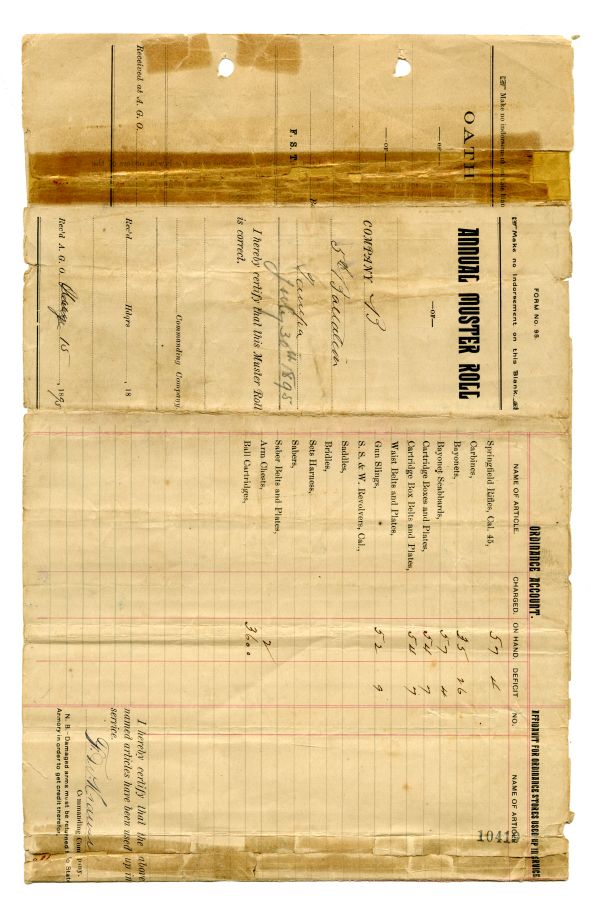 ☞ Make no indorsement on this blan
OATH
—OF—
—OF—
F. S. T.
Received at A. G. O.
FORM No. 95.
☞ Make no Indorsement on this Blank. ☜
ANNUAL MUSTER ROLL
—OF—
COMPANY B
5th Battalion
Tampa
July 30th 1895
I hereby certify that this Muster Roll
is correct.
Commanding Company.
Rec'd Hdqrs , 18
Rec'd A. G. O. 15 , 1895
ORDINANCE ACCOUNT.
NAME OF ARTICLE. CHARGED. ON HAND. DEFICIT
Springfield Rifles, Cal. 45, 57 4
Carbines,
Bayonets, 35 26
Bayonet Scabbards, 57 4
Cartridge Boxes and Plates, 54 7
Cartridge Box Belts and Plates, 54 7
Waist Belts and Plates,
Gun Slings, 52 9
S. S. & W. Revolvers, Cal.,
Saddles,
Bridles,
Sets Harness,
Sabers,
Saber Belts and Plates,
Arm Chests, 2
Ball Cartridges, 3600
AFFIDAVIT FOR ORDINANCE STORES USED UP IN SERVICE
NO. NAME OF ARTICLE
10419
I hereby certify that the above
named articles have been used up in
service.
Commanding Company.
N. B.—Damaged arms must be returned to State
Armory in order to get credit therefor.